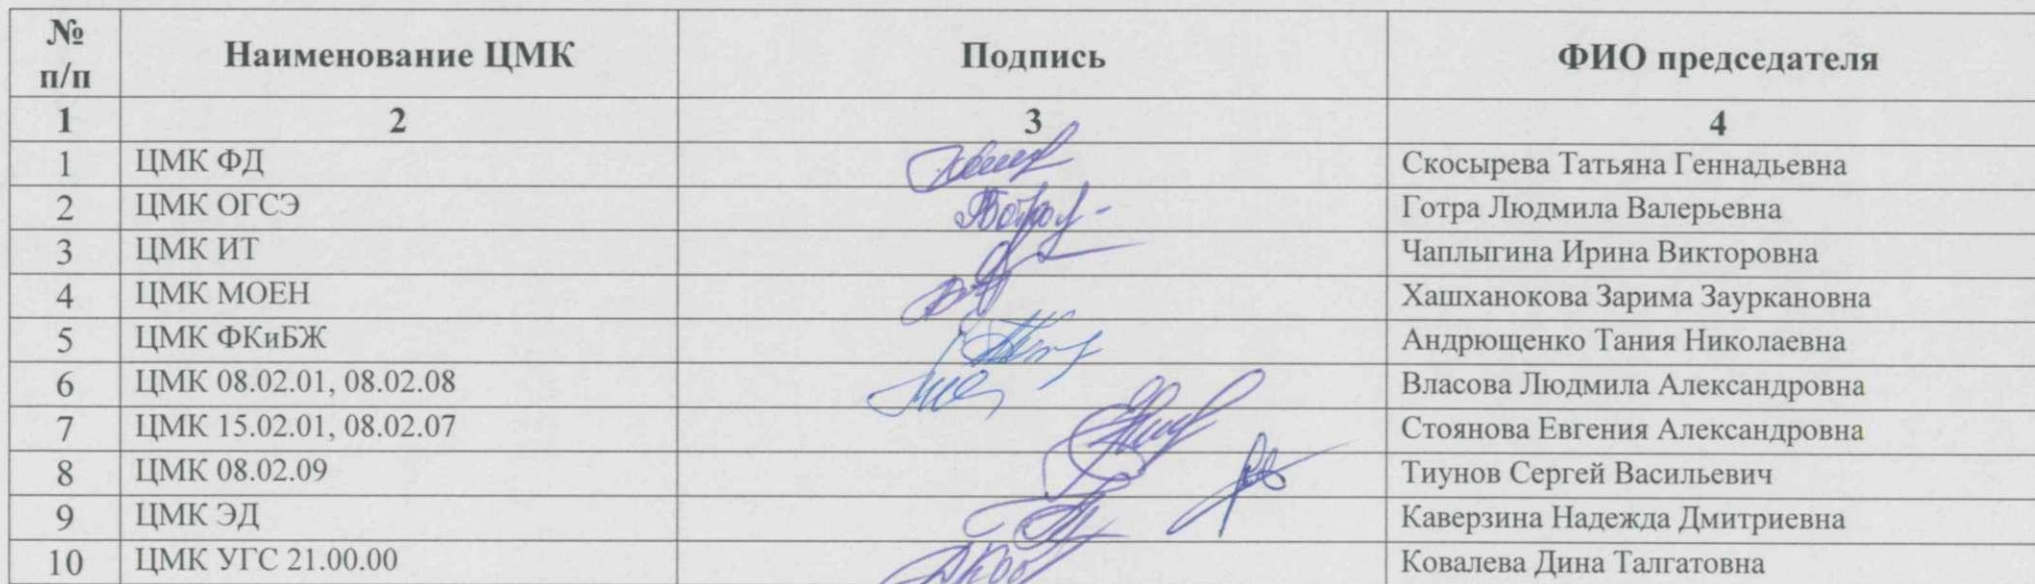 № п/п Наименование ЦМК Подпись ФИО председателя
1 2 3 4
1 ЦМК ФД Скосырева Татьяна Геннадьевна
2 ЦМК ОГСЭ Готра Людмила Валерьевна
3 ЦМК ИТ Чаплыгина Ирина Викторовна
4 ЦМК МОЕН Хашханокова Зарима Заурkановна
5 ЦМК ФКиБЖ Андрющенко Тания Николаевна
6 ЦМК 08.02.01, 08.02.08 Власова Людмила Александровна
7 ЦМК 15.02.01, 08.02.07 Стоянова Евгения Александровна
8 ЦМК 08.02.09 Тиунов Сергей Васильевич
9 ЦМК ЭД Каверзина Надежда Дмитриевна
10 ЦМК УГС 21.00.00 Ковалева Дина Талгатовна